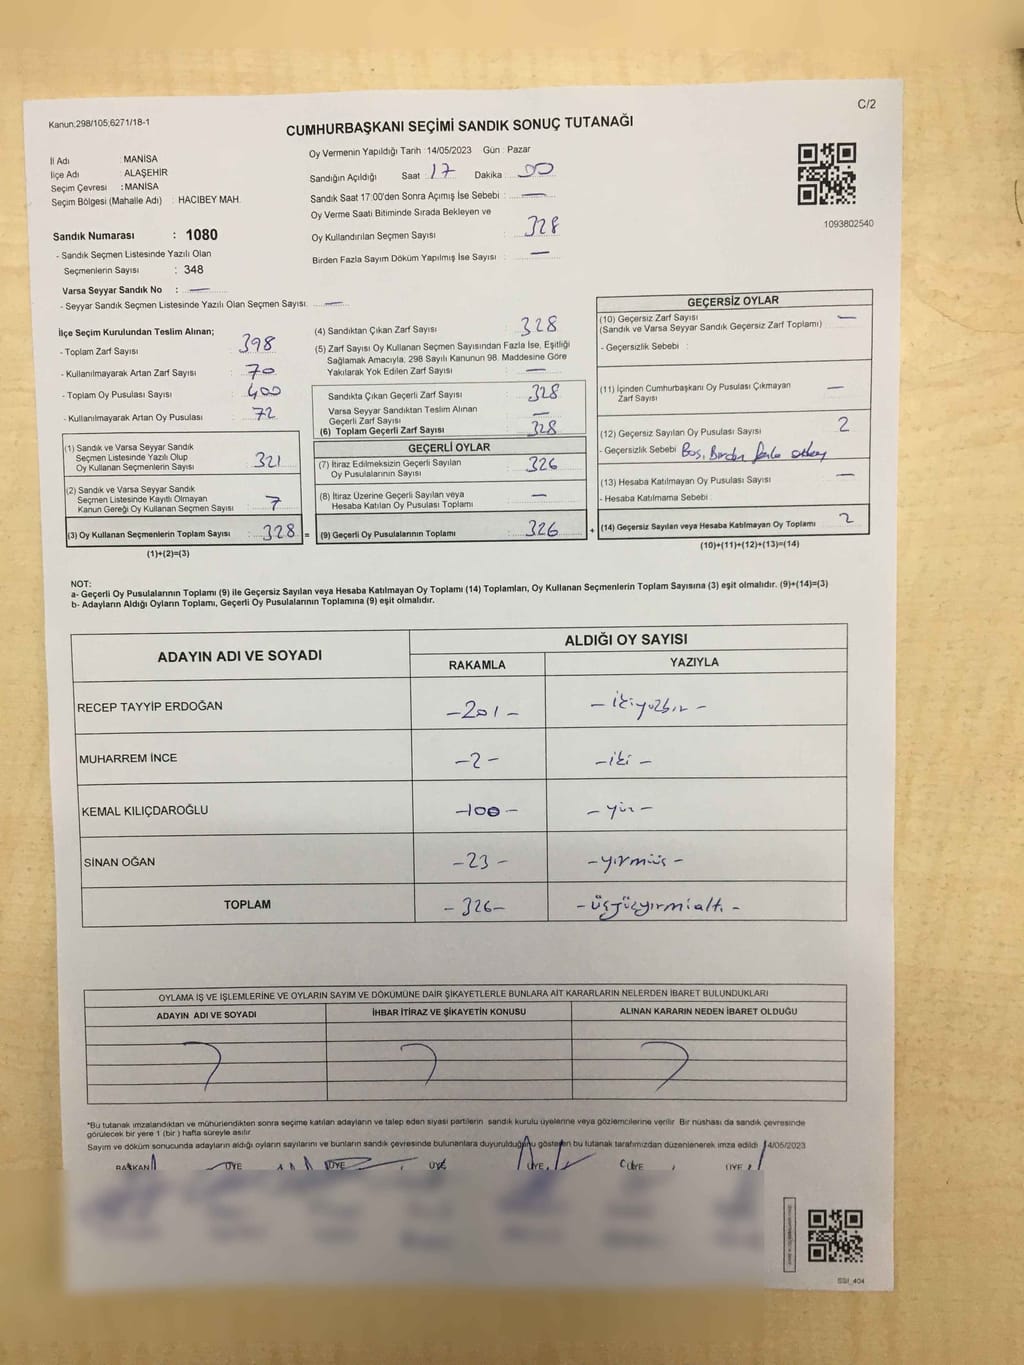 C/2
Kanun:298/105;6271/18-1
CUMHURBAŞKANI SEÇİMİ SANDIK SONUÇ TUTANAĞI
İl Adı : MANİSA
İlçe Adı : ALAŞEHİR
Seçim Çevresi : MANİSA
Seçim Bölgesi (Mahalle Adı) : HACIBEY MAH.
Sandık Numarası : 1080
- Sandık Seçmen Listesinde Yazılı Olan
Seçmenlerin Sayısı : 348
Varsa Seyyar Sandık No : —
- Seyyar Sandık Seçmen Listesinde Yazılı Olan Seçmen Sayısı: —
Oy Vermenin Yapıldığı Tarih : 14/05/2023 Gün : Pazar
Sandığın Açıldığı Saat : 17 Dakika : 00
Sandık Saat 17:00'den Sonra Açımış İse Sebebi : —
Oy Verme Saati Bitiminde Sırada Bekleyen ve
Oy Kullandırılan Seçmen Sayısı : 328
Birden Fazla Sayım Döküm Yapılmış İse Sayısı : —
1093802540
İlçe Seçim Kurulundan Teslim Alınan;
- Toplam Zarf Sayısı : 398
- Kullanılmayarak Artan Zarf Sayısı : 70
- Toplam Oy Pusulası Sayısı : 400
- Kullanılmayarak Artan Oy Pusulası : 72
(1) Sandık ve Varsa Seyyar Sandık
Seçmen Listesinde Yazılı Olup
Oy Kullanan Seçmenlerin Sayısı : 321
(2) Sandık ve Varsa Seyyar Sandık
Seçmen Listesinde Kayıtlı Olmayan
Kanun Gereği Oy Kullanan Seçmen Sayısı : 7
(3) Oy Kullanan Seçmenlerin Toplam Sayısı : 328 =
(1)+(2)=(3)
(4) Sandıktan Çıkan Zarf Sayısı : 328
(5) Zarf Sayısı Oy Kullanan Seçmen Sayısından Fazla İse, Eşitliği
Sağlamak Amacıyla, 298 Sayılı Kanunun 98. Maddesine Göre
Yakılarak Yok Edilen Zarf Sayısı : —
Sandıkta Çıkan Geçerli Zarf Sayısı : 328
Varsa Seyyar Sandıktan Teslim Alınan
Geçerli Zarf Sayısı : —
(6) Toplam Geçerli Zarf Sayısı : 328
GEÇERLİ OYLAR
(7) İtiraz Edilmeksizin Geçerli Sayılan
Oy Pusulalarının Sayısı : 326
(8) İtiraz Üzerine Geçerli Sayılan veya
Hesaba Katılan Oy Pusulası Toplamı : —
(9) Geçerli Oy Pusulalarının Toplamı : 326 +
GEÇERSİZ OYLAR
(10) Geçersiz Zarf Sayısı : —
(Sandık ve Varsa Seyyar Sandık Geçersiz Zarf Toplamı)
- Geçersizlik Sebebi :
(11) İçinden Cumhurbaşkanı Oy Pusulası Çıkmayan
Zarf Sayısı : —
(12) Geçersiz Sayılan Oy Pusulası Sayısı : 2
- Geçersizlik Sebebi : Boş, Birden fazla
(13) Hesaba Katılmayan Oy Pusulası Sayısı : —
- Hesaba Katılmama Sebebi :
(14) Geçersiz Sayılan veya Hesaba Katılmayan Oy Toplamı : 2
(10)+(11)+(12)+(13)=(14)
NOT:
a- Geçerli Oy Pusulalarının Toplamı (9) ile Geçersiz Sayılan veya Hesaba Katılmayan Oy Toplamı (14) Toplamları, Oy Kullanan Seçmenlerin Toplam Sayısına (3) eşit olmalıdır. (9)+(14)=(3)
b- Adayların Aldığı Oyların Toplamı, Geçerli Oy Pusulalarının Toplamına (9) eşit olmalıdır.
ADAYIN ADI VE SOYADI ALDIĞI OY SAYISI
RAKAMLA YAZIYLA
RECEP TAYYİP ERDOĞAN -201- - ikiyüzbir -
MUHARREM İNCE -2- -iki-
KEMAL KILIÇDAROĞLU -100- - yüz -
SİNAN OĞAN -23- -yirmiüç-
TOPLAM -326- - üçyüzyirmialtı -
OYLAMA İŞ VE İŞLEMLERİNE VE OYLARIN SAYIM VE DÖKÜMÜNE DAİR ŞİKAYETLERLE BUNLARA AİT KARARLARIN NELERDEN İBARET BULUNDUKLARI
ADAYIN ADI VE SOYADI İHBAR İTİRAZ VE ŞİKAYETİN KONUSU ALINAN KARARIN NEDEN İBARET OLDUĞU
*Bu tutanak imzalandıktan ve mühürlendikten sonra seçime katılan adayların ve talep eden siyasi partilerin sandık kurulu üyelerine veya gözlemcilerine verilir. Bir nüshası da sandık çevresinde
görülecek bir yere 1 (bir) hafta süreyle asılır.
Sayım ve döküm sonucunda adayların aldığı oyların sayılarını ve bunların sandık çevresinde bulunanlara duyurulduğunu gösteren bu tutanak tarafımızdan düzenlenerek imza edildi. 14/05/2023
BAŞKAN ÜYE ÜYE ÜYE ÜYE ÜYE ÜYE
SSI_404